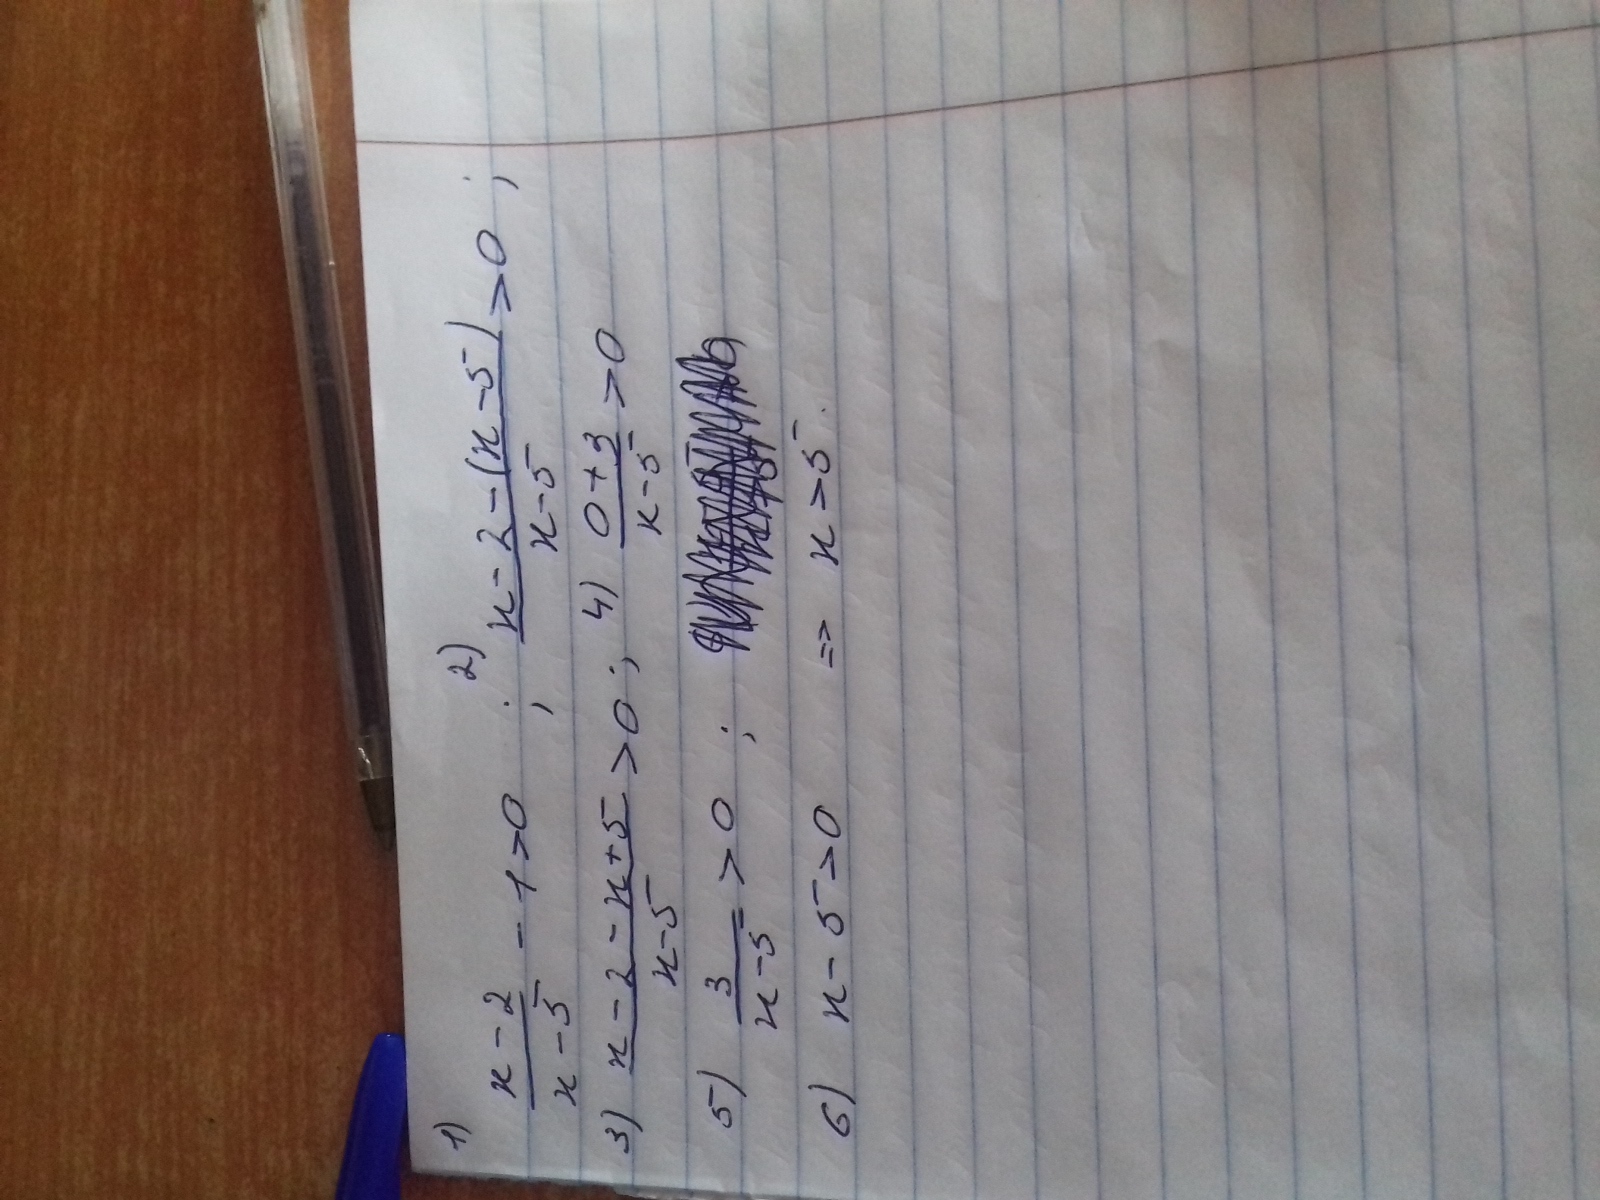 1) x-2/x-5 - 1>0 ; 2) x-2-(x-5)/x-5 >0 ;
3) x-2-x+5/x-5 >0 ; 4) 0+3/x-5 >0
5) 3/x-5 >0 ;
6) x-5>0 => x>5.